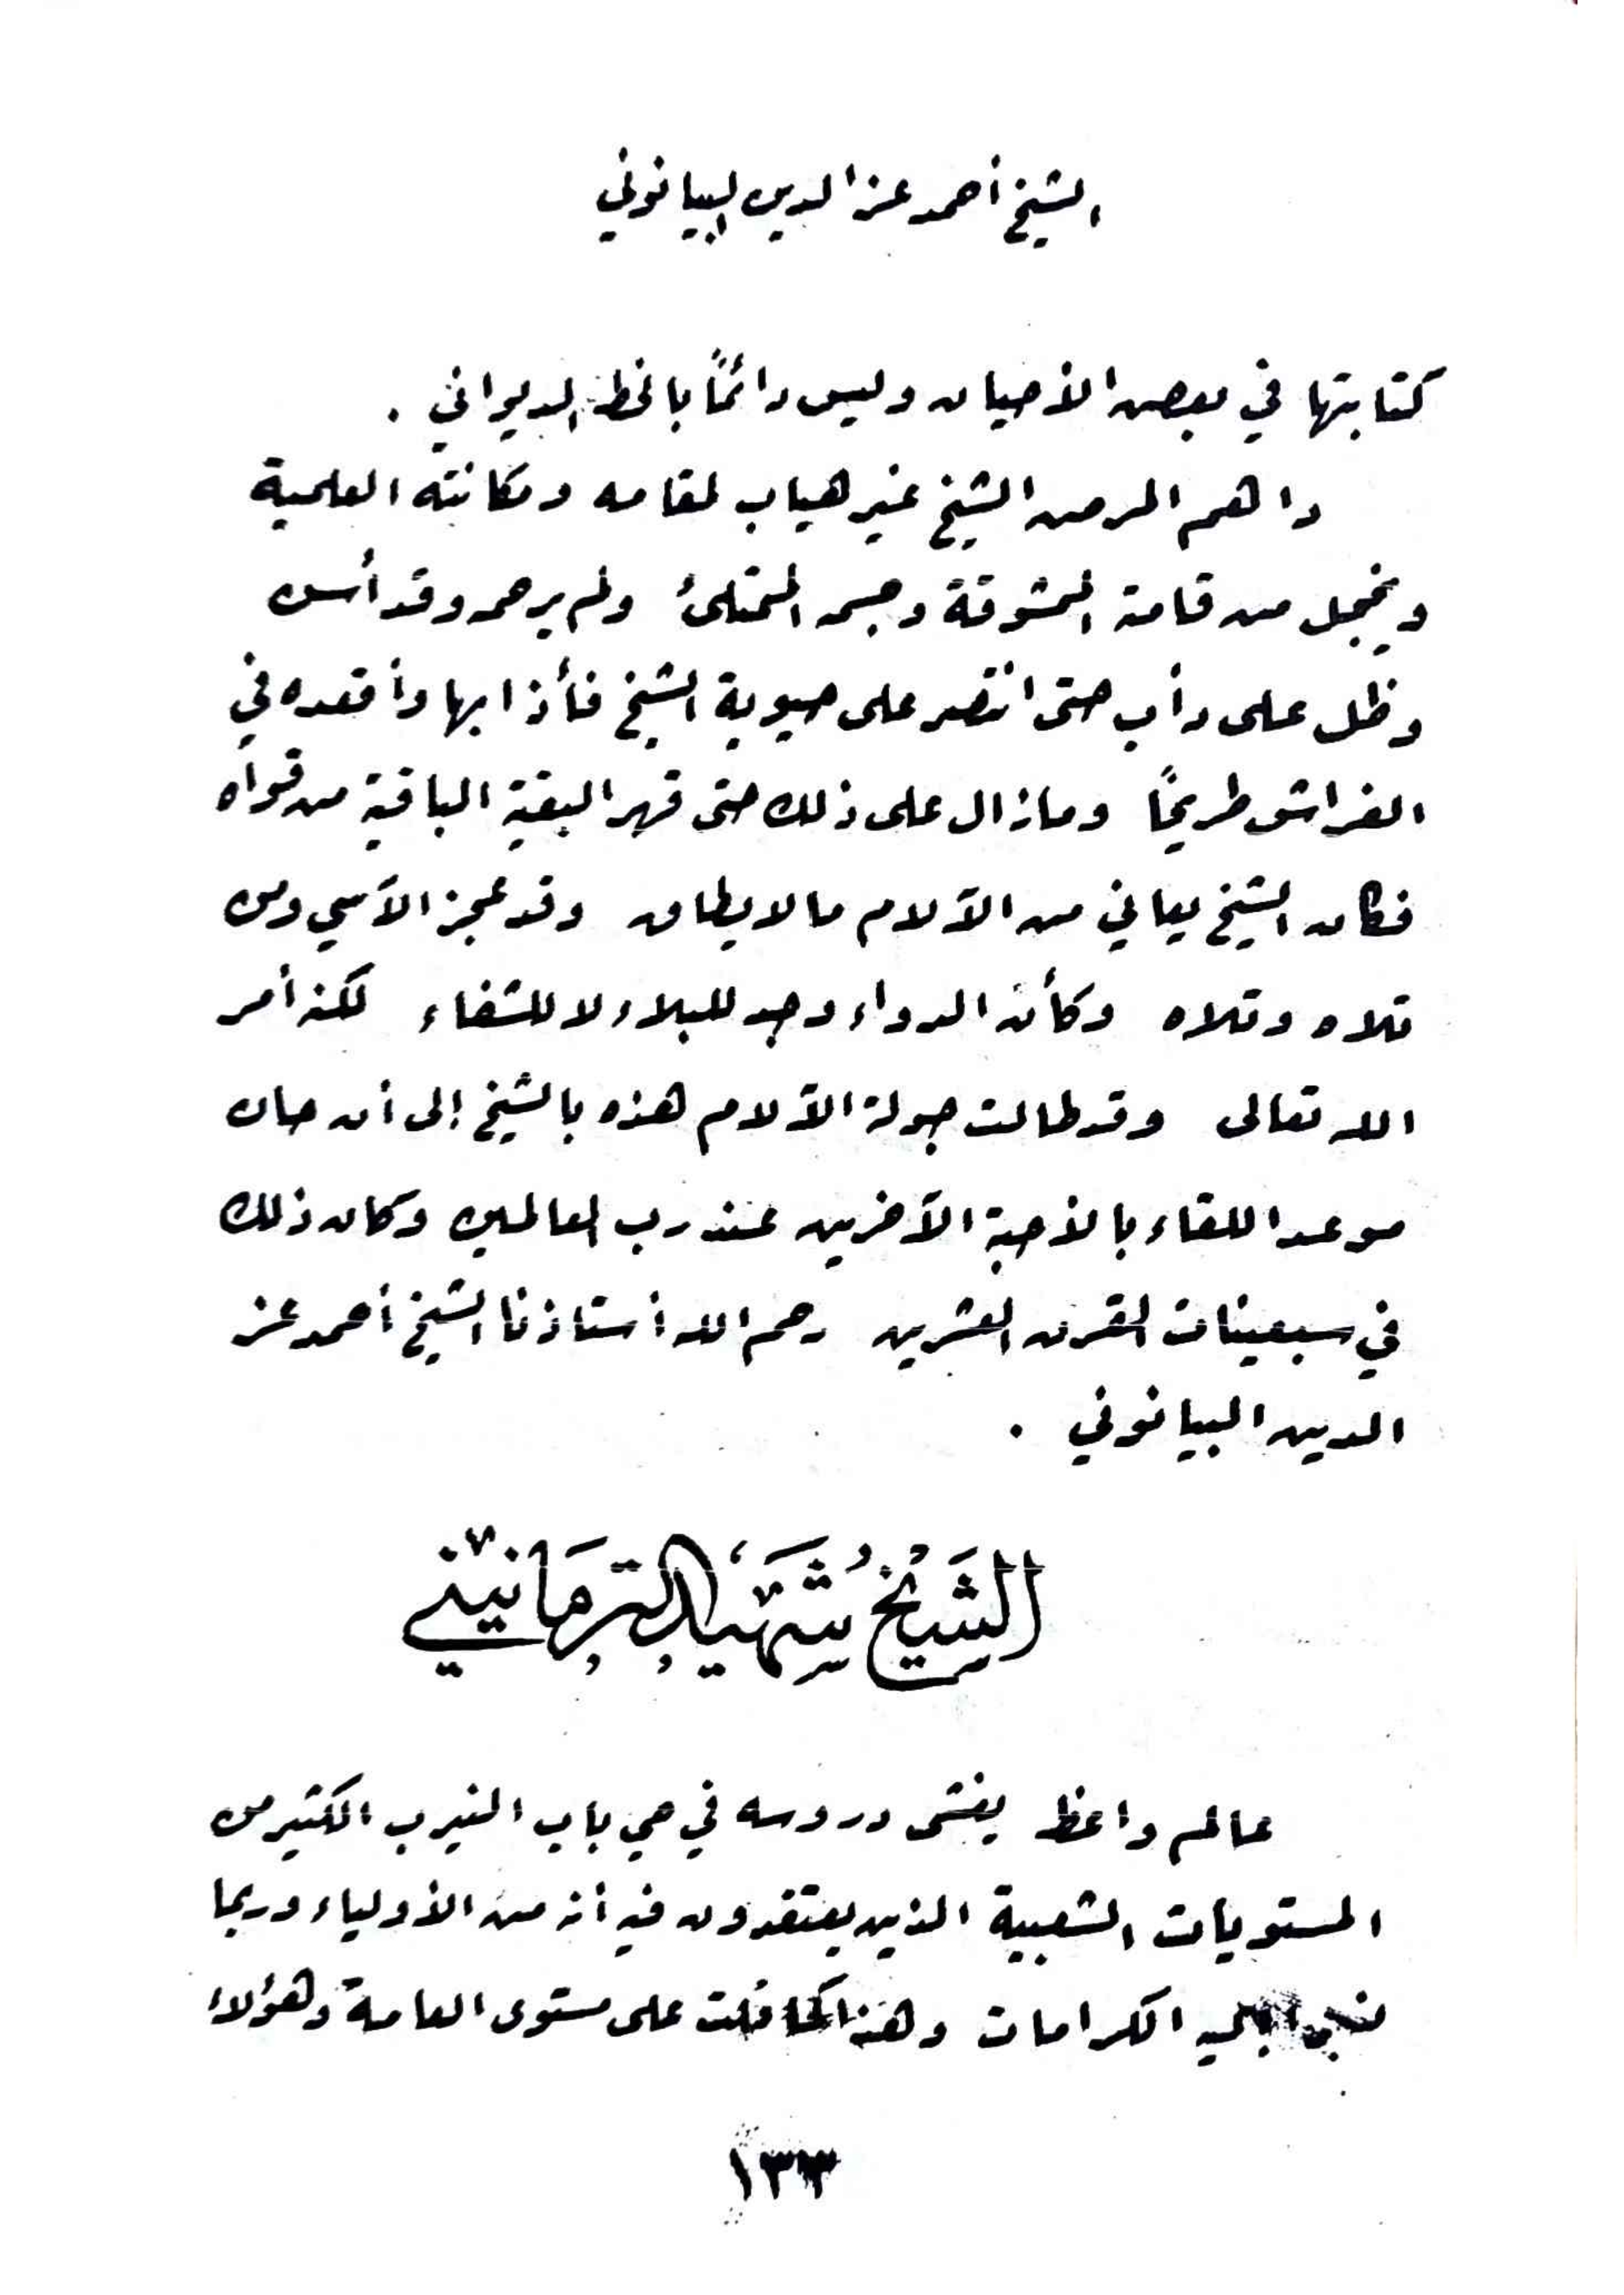 الشيخ أحمد عز الدين البيانوني
كتابتها في بعض الأحيان وليس دائماً بالخط الديواني .
داهم المرض الشيخ غير هياب لمقامه ومكانته العلمية
ويخجل من قامته الممشوقة وجسمه الممتلئ ولم يرحمه وقد أسن
وظل على دأبه حتى انتصر على حيوية الشيخ فأذابها وأقعده في
الفراش طريحاً ومازال على ذلك حتى قهر البقية الباقية من قواه
فكان الشيخ يعاني من الآلام ما لا يطاق وقد عجز الآسي ومن
تلاه وتلاه وكأن الدواء وجد للبلاء لا للشفاء لكنه أمر
الله تعالى وقد طالت جولة الآلام هذه بالشيخ إلى أن حان
موعد اللقاء بالأحبة الآخرين عند رب العالمين وكان ذلك
في سبعينات القرن العشرين رحم الله أستاذنا الشيخ أحمد عز
الدين البيانوني .
الشَّيْخُ شَهِيد الترمَانيني
عالم واعظ يغشى دروسه في حي باب النيرب الكثير من
المستويات الشعبية الذين يعتقدون فيه أنه من الأولياء وربما
الكرامات وهذا كما قلت على مستوى العامة وهؤلاء
١٣٣